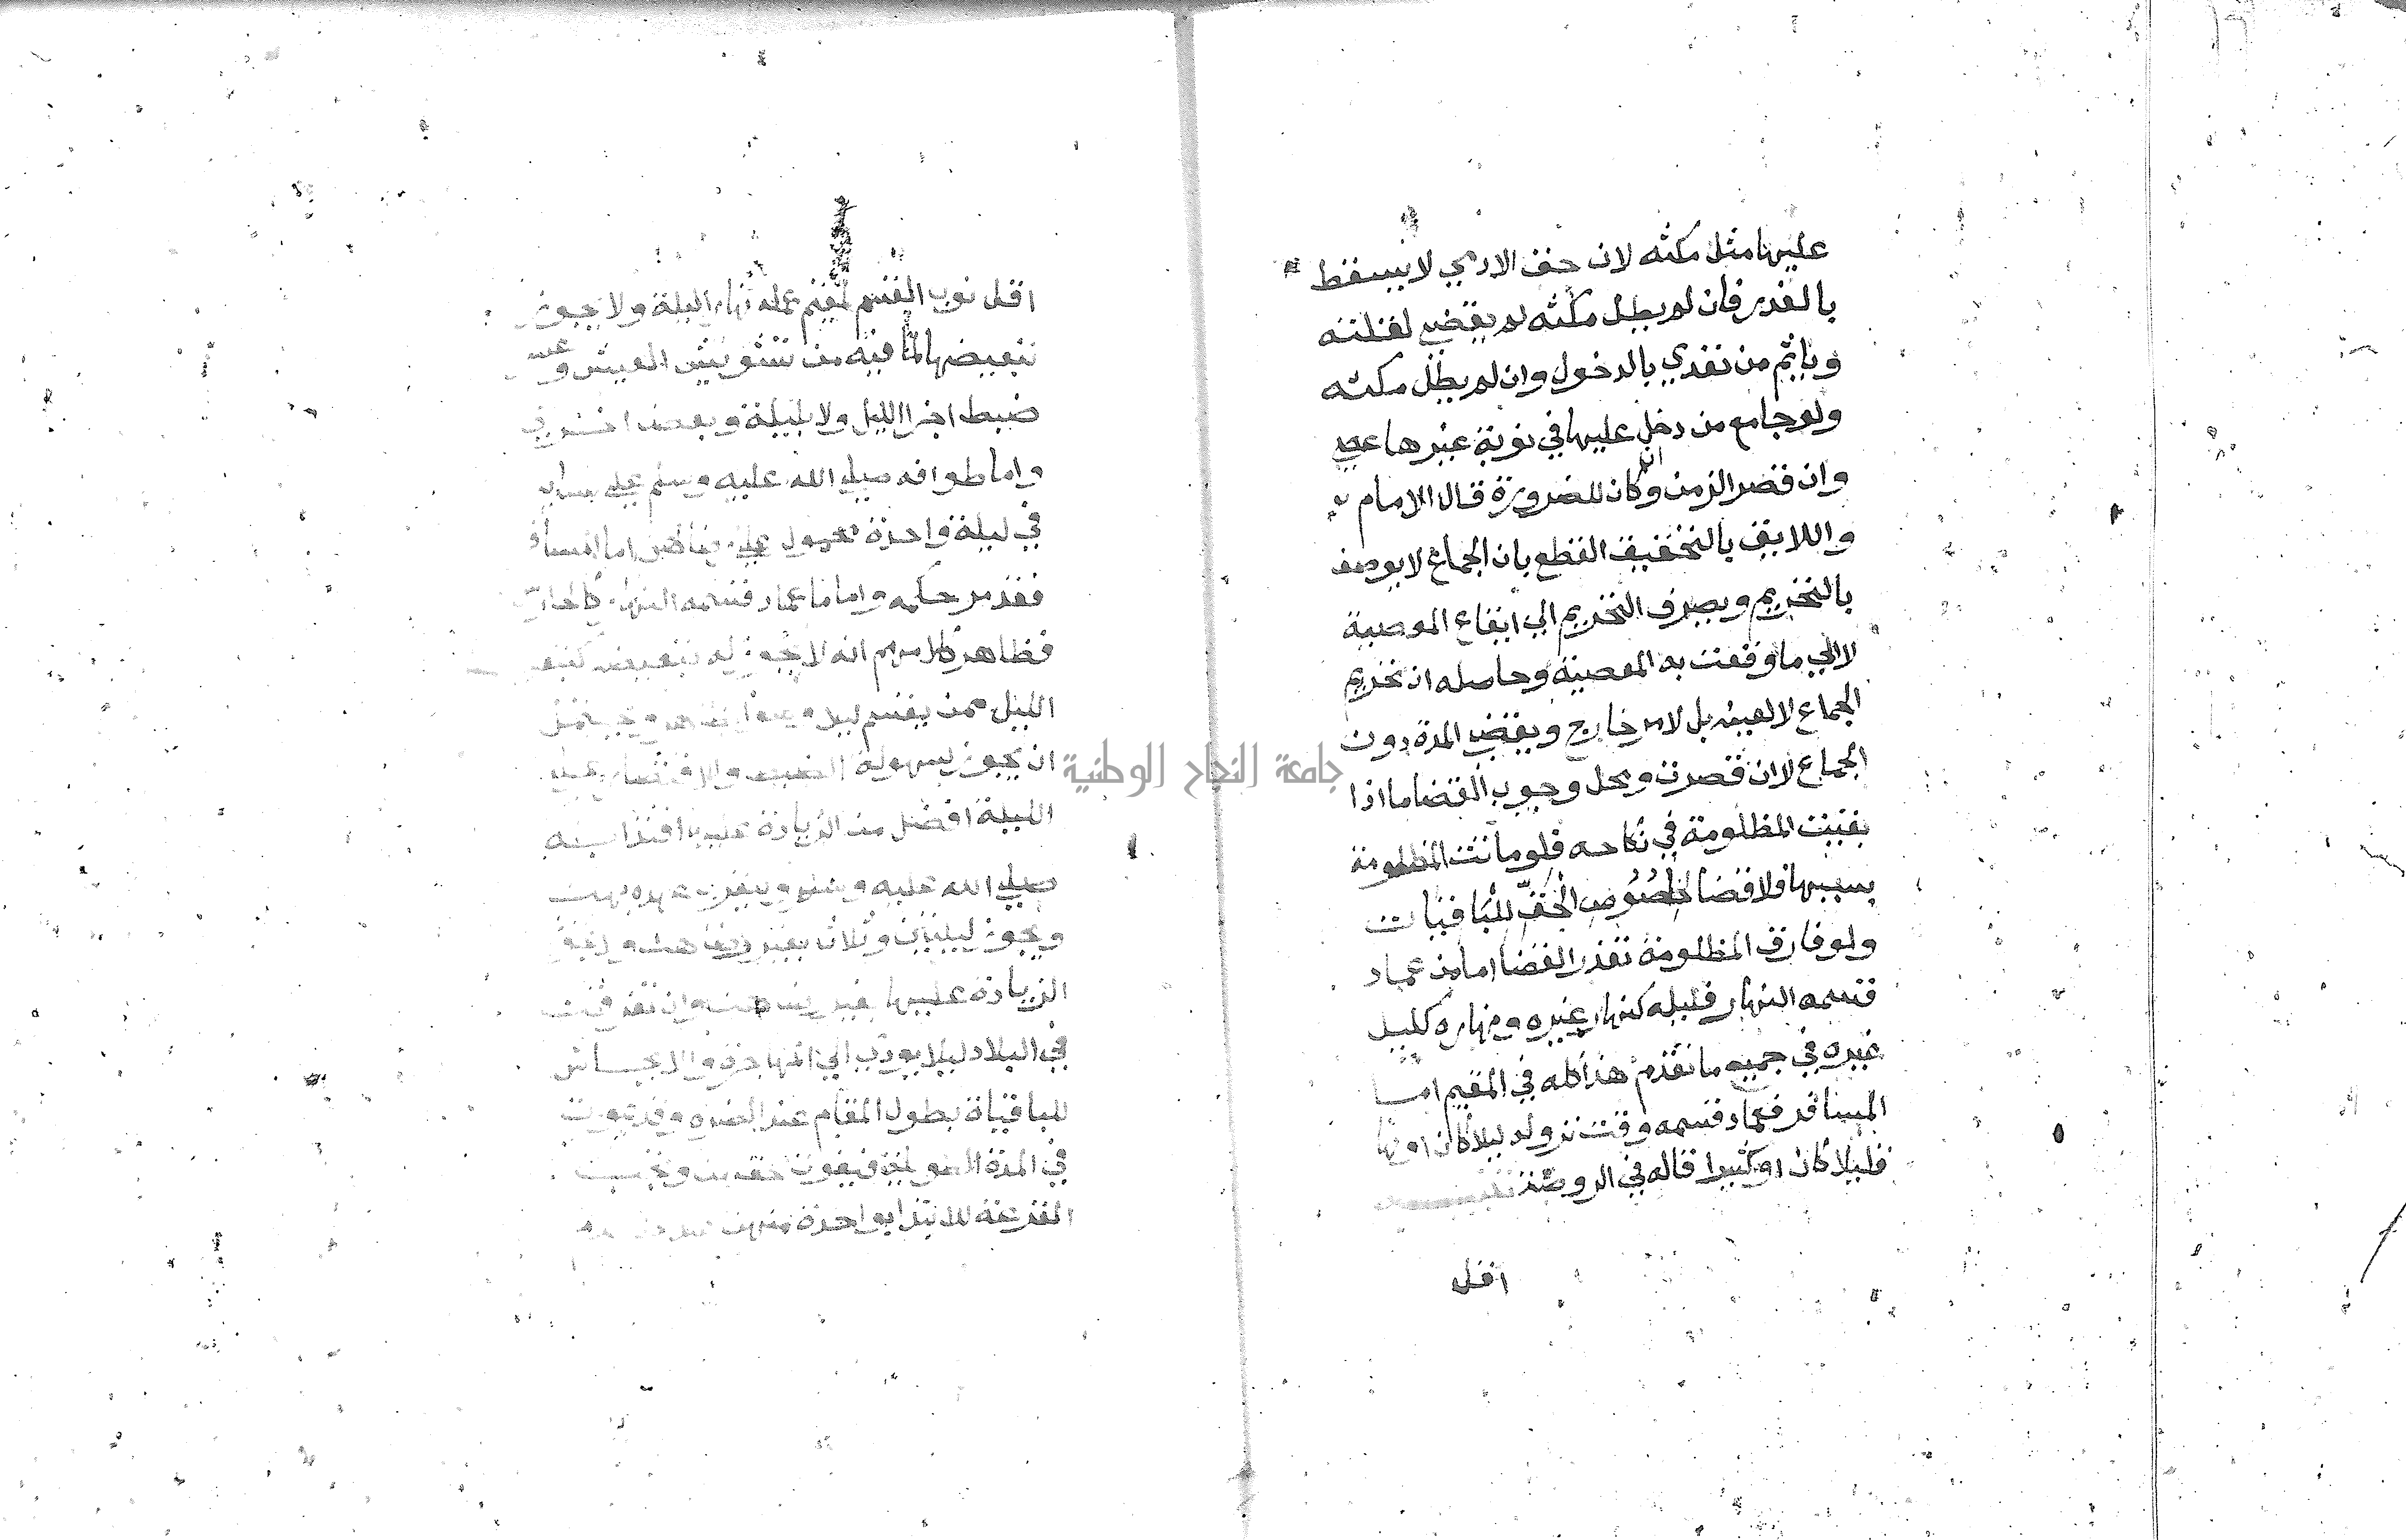 عليها مثل مكثه لان حق الادمي لا يسقط
بالعذر فان لم يطل مكثه لم يقض لقلته
وياثم من تعدي بالدخول وان لم يطل مكثه
ولو جامع من دخل عليها في نوبة غيرها عصي
وان قصر الزمن وكان للضرورة قال الامام
واللايق بالتحقيق القطع بان الجماع لا يوصف
بالتحريم ويصرف التحريم الي ايقاع المعصية
لا الي ما وقعت به المعصية وحاصله ان تحريم
الجماع لا لعينه بل لامر خارج ويقضي المدة دون
الجماع لا ان قصرت ومحل وجوب القضا ما اذا
بقيت المظلومة في نكاحه فلو ماتت المظلومة
بسببها فلا قضا لخلوص الحق للباقيات
ولو فارق المظلومة تعذر القضا اما من عماد
قسمه النهار فليله كنهار غيره ونهاره كليل
غيره في جميع ما تقدم هذا كله في المقيم اما
المسافر فعماد قسمه وقت نزوله ليلا كان او نهارا
قليلا كان او كثيرا قاله في الروضة
اقل
اقل نوب القسم لمقيم عمله نهارا ليلة ولا يجوز
تبعيضها لما فيه من تشويش العيش وعسر
ضبط اجزا الليل ولا بليلة وبعض اخري
واما طوافه صلي الله عليه وسلم علي نسايه
في ليلة واحدة محمول علي رضاهن اما المسافر
فقد مر حكمه واما من عماد قسمه النهار كالحارس
فظاهر كلامهم انه لا يجوز له تبعيضه كتبعيض
الليل ممن يقسم ليلا وهو الظاهر ويحتمل
ان يجوز لسهولة الضبط والاقتصار علي
الليلة افضل من الزيادة عليها اقتدا به
صلي الله عليه وسلم وليقرب عهده بهن
ويجوز ليلتين وثلاث بغير رضاهن ولا يجوز
الزيادة عليها بغير رضاهن وان تفرقن
في البلاد ليلا يودي الي المهاجرة والايحاش
للباقيات بطول المقام عند الضرة وقد يموت
في المدة الطويلة فيفوت حقهن وتجب
القرعة للابتدا بواحدة منهن
جامعة النجاح الوطنية